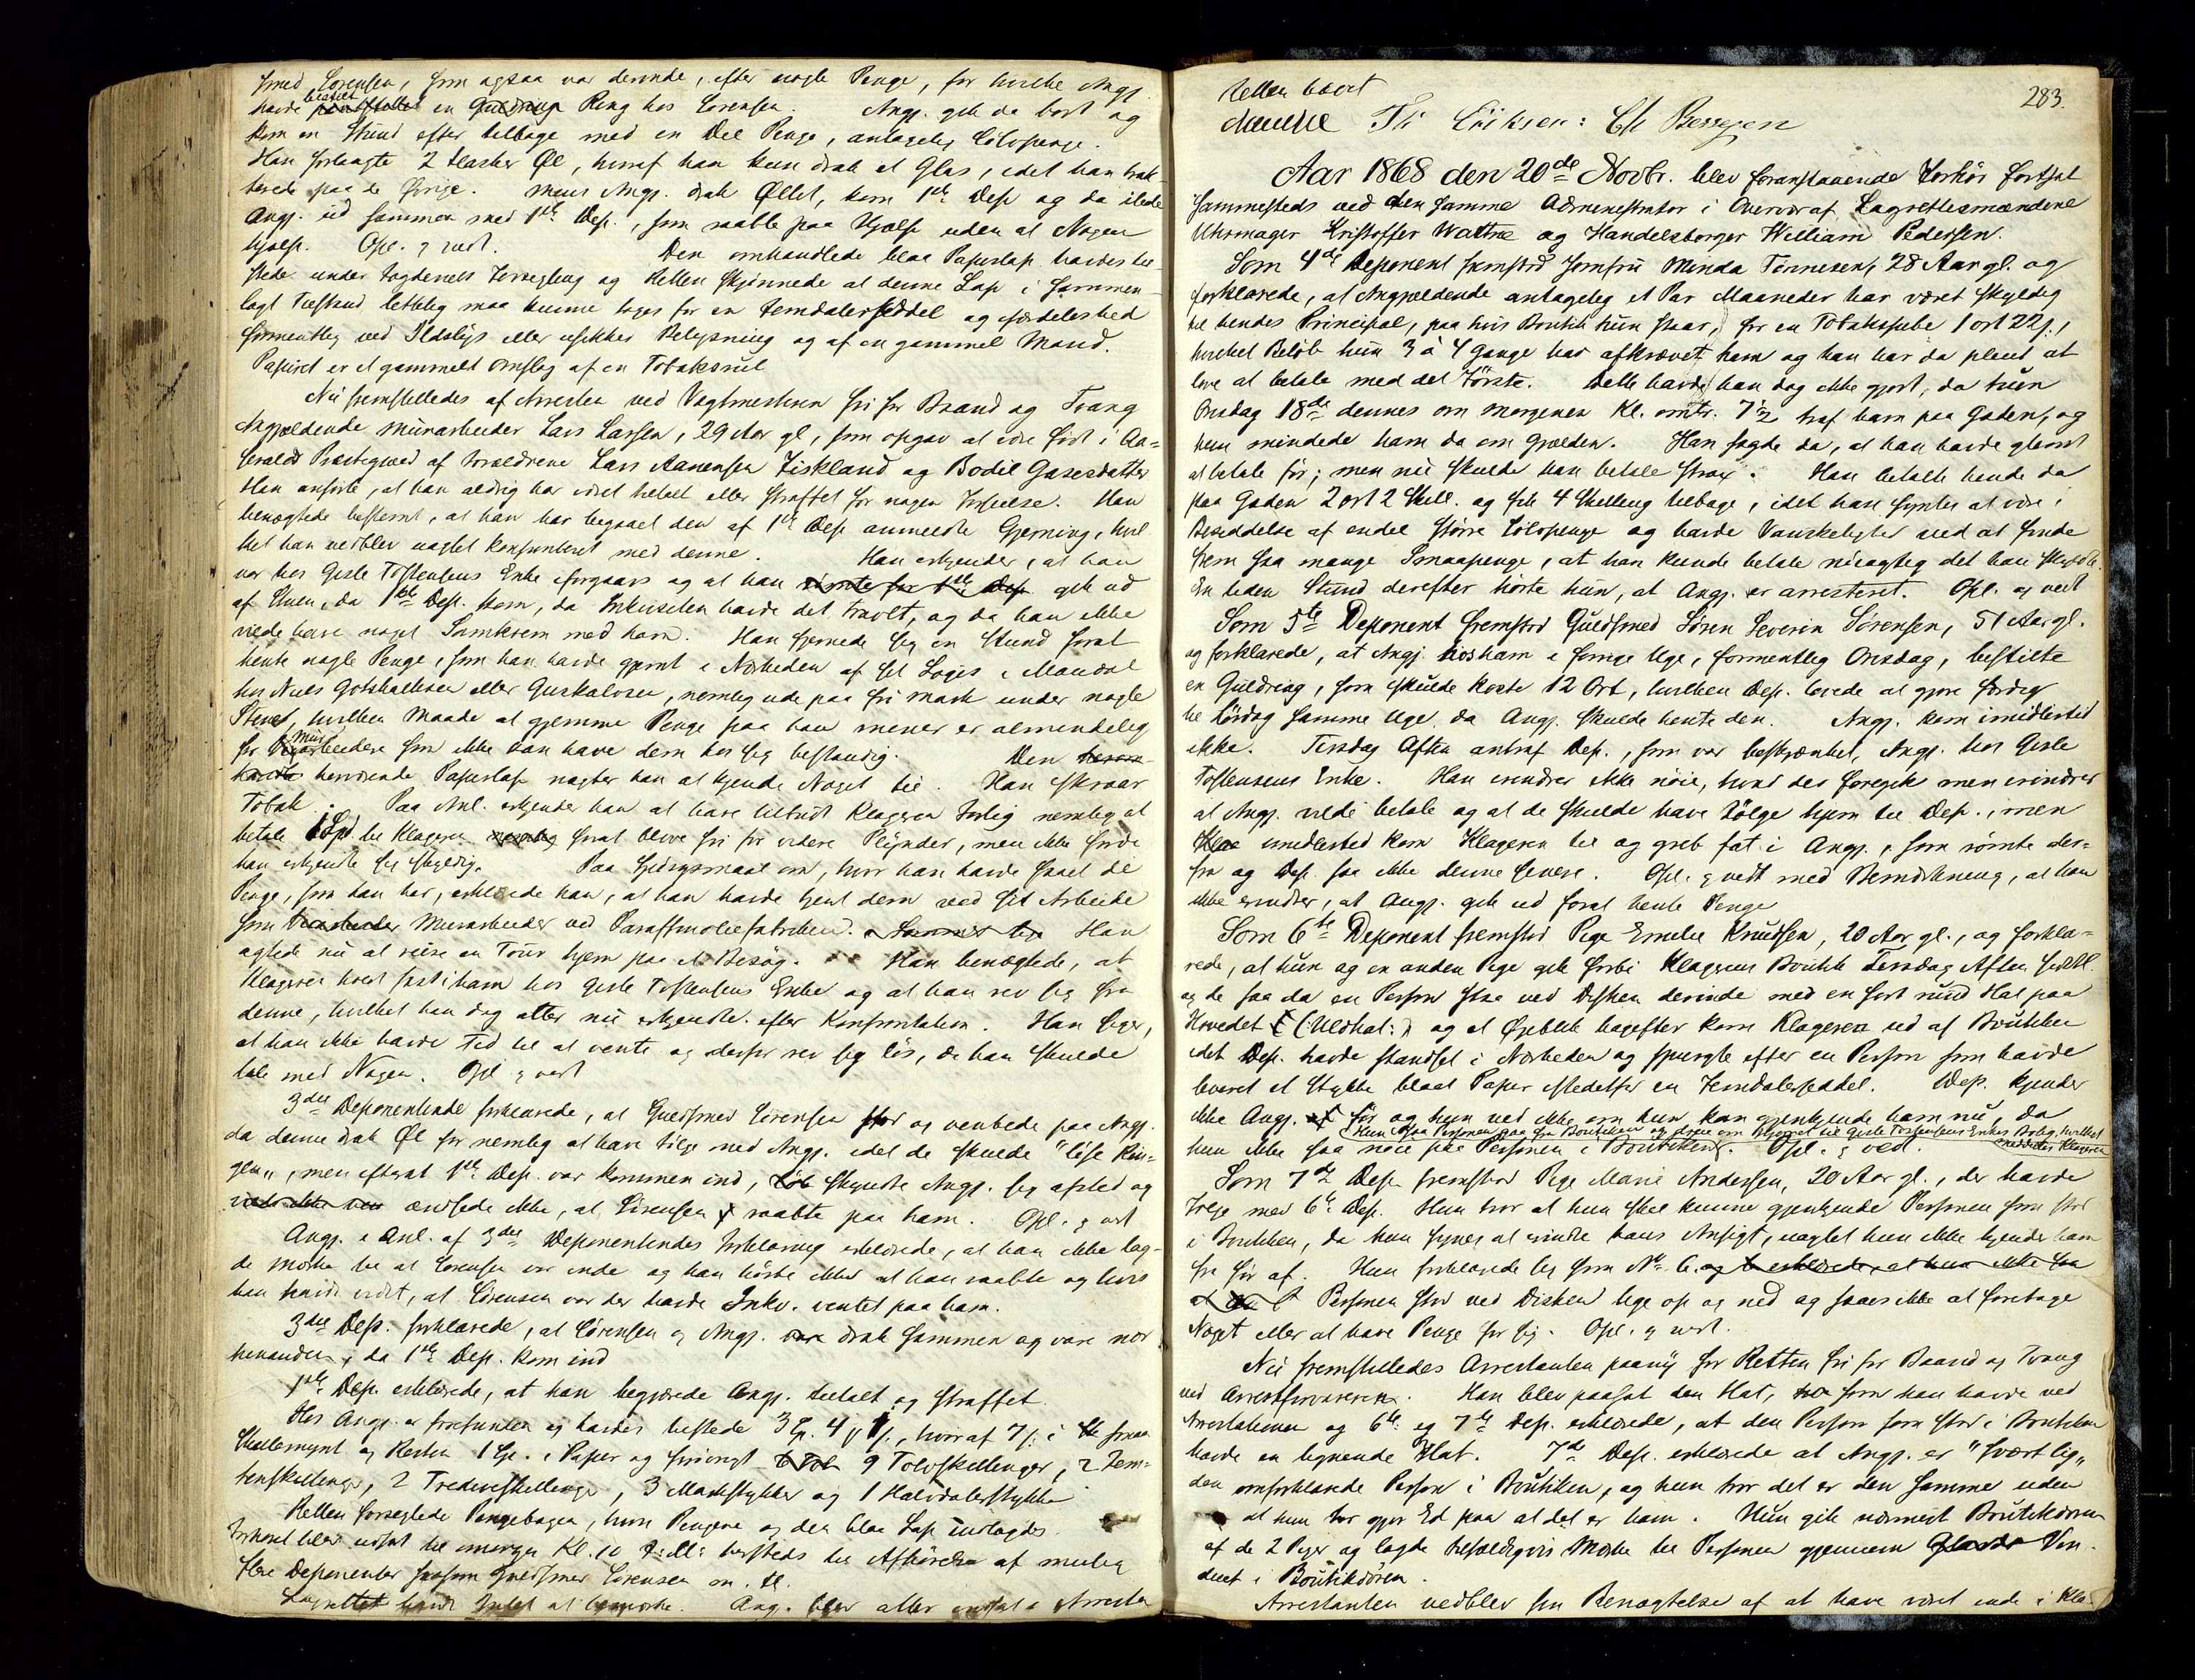 smed Sørensen, som ogsaa var derinde, efter nogle Penge, for hvilke Angj.
havde bestilt en Guldring Ring hos Sørensen. Angj. gik da bort og
kom en Stund efter tilbage med en Del Penge, antagelig Sølvpenge.
Han forlangte 2 Flasker Øl, hvoraf han kun drak et Glas, idet han trak-
terede paa de øvrige. Mens Angj. drak Øllet, kom 1ste Dep. og da ilede
Angj. ud sammen med 1ste Dep., som raabte paa Hjælp uden at Nogen
hjalp. Opl. & vedt. Den omhandlede blaa Papirlap havdes til-
stede under Fogdens Forsegling og Retten skjønnede at denne Lap i sammen-
lagt Tilstand lettelig maa kunne tages for en Femdalerseddel og særdeleshed
formentlig ved Ildslys eller usikker Belysning og af en gammel Mand.
Papiret er et gammelt Omslag af en Tobaksrul
Nu fremstilledes af Arresten ved Vagtmesteren fri for Baand og Tvang
Angjældende Murarbeider Lars Larsen, 29 Aar gl, som opgav at være født i Aa-
seralds Præstegjeld af Forældrene Lars Aanensen Fiskland og Bodil Gasesdatter
Han anførte, at han aldrig har været tiltalt eller straffet for nogen Forseelse. Han
benægtede bestemt, at han har begaaet den af 1ste Dep. anmeldte Gjerning, hvil
ket han vedblev uagtet konfronteret med denne. Han erkjender, at han
var hos Gisle Tostensens Enke iforgaars og at han rømte for 1ste Dep. gik ud
af Stuen, da 1ste Dep. kom, da Inkvisiten havde det travlt, og da han ikke
vilde have noget Samkvem med ham. Han fjernede sig en Stund forat
hente nogle Penge, som han havde gjemt i Nærheden af sit Logis i Mandal
hos Niels Gotskalksen eller Guskalosen, nemlig ude paa fri Mark under nogle
Stene, hvilken Maade at gjemme Penge paa han mener er almindelig
for Murarbeidere som ikke kan have dem hos sig bestandig. Den
havde herværende Papirlap nægter han at kjende Noget til. Han skraar
Tobak. Paa Anl. erkjender han at have tilbudt Klageren Forlig nemlig at
betale 1 Spd. til Klageren nemlig forat blive fri for videre Plynder, men ikke fordi
han erkjendte sig skyldig. Paa Spørgsmaal om, hvor han havde faaet de
Penge, som han har, erklærede han, at han havde tjent dem ved sit Arbeide
som Murarbeider ved Paraffinoliefabriken. Han
agtede nu at reise en Tour hjem paa et Besøg. Han benægtede, at
Klageren holdt fast i ham hos Gisle Tostensens Enke og at han rev sig fra
denne, hvilket han dog atter nu erkjendte efter Konfrontation. Han siger,
at han ikke havde Tid til at vente og derfor rev sig løs, da han skulde
tale med Nogen. Opl & vedt
3die Deponentinde forklarede, at Guldsmed Sørensen stod og ventede paa Angj.
da denne drak Øl for nemlig at have Følge med Angj. idet de skulde "løse Rin-
gen", men efterat 1ste Dep. var kommen ind, skyndte Angj. sig afsted og
ændsede ikke, at Sørensen raabte paa ham. Opl. & vedt
Angj. i Anl. af 3die Deponentindes Forklaring erklærede, at han ikke lag-
de Mærke til at Sørensen var inde og han hørte ikke at han raabte og hvis
han havde vidst, at Sørensen var der havde Inkv. ventet paa ham.
3die Dep. forklarede, at Sørensen og Angj. drak sammen og vare nær
hinanden, da 1ste Dep. kom ind
1ste Dep. erklærede, at han begjærede Angj. tiltalt og straffet
Hos Angj. er forefunden og havdes tilstede 3 Sp. 4 , hvoraf 7 i
Skillemynt og Resten 1 Sp. i Papir og forøvrigt 9 Tolvskillinger, 2 Fem-
tenskillinger, 2 Tredveskillinger, 3 Markstykker og 1 Halvdalerstykke
Retten forseglede Pengebogen, hvori Pengene og den blaa Lap indlagdes.
Forhøret blev udsat til imorgen Kl. 10 F: M: hersteds til Afhørelse af mulig
flere Deponenter saasom Guldsmed Sørensen m. fl.
Lagrettet havde Intet at bemærke. Ang. blev atter indsat i Arresten
283.
Retten hævet
Th Eriksen:
Aar 1868 den 20de Novbr. blev foranstaaende Forhør fortsat
sammesteds ved den samme Administrator i Overvær af Lagrettesmændene
Uhrmager Kristoffer Wattne og Handelsborger William Pedersen.
Som 4de Deponent fremstod Jomfru Minda Tønnesen, 28 Aar gl. og
forklarede, at Angjældende antagelig et Par Maaneder har været skyldig
til hendes Principal, paa hvis Boutik hun staar, for en Tobakspibe 1 ort 22 s.,
hvilket Beløb hun 3 à 4 Gange har afkrævet ham og han har da pleiet at
love at betale med det Første. Dette havde han dog ikke gjort, da hun
Onsdag 18de dennes om Morgenen Kl. omtr. 7½ traf ham paa Gaden, og
hun mindede ham da om Gjælden. Han sagde da, at han havde glemt
at betale før; men nu skulde han betale strax. Han betalte hende da
paa Gaden 2 ort 2 Skill. og fik 4 Skilling tilbage, idet han syntes at være i
Besiddelse af endel større Sølvpenge og havde Vanskeligheder med at finde
frem saa mange Smaapenge, at han kunde betale nøiagtig det han skyldte.
En liden Stund derefter hørte hun, at Angj. er arresteret. Opl. og vedt
Som 5te Deponent fremstod Guldsmed Søren Severin Sørensen, 51 Aar gl.
og forklarede, at Angj. hos ham i forrige Uge, formentlig Onsdag, bestilte
en Guldring, som skulde koste 12 Ort, hvilken Dep. lovede at gjøre færdig
til Lørdag samme Uge, da Angj. skulde hente den. Angj. kom imidlertid
ikke. Tirsdag Aften antraf Dep., som var beskjænket, Angj. hos Gisle
Tostensens Enke. Han erindrer ikke nøie, hvad der foregik men erindrer
at Angj. vilde betale og at de skulde have Følge hjem til Dep., men
imidlertid kom Klageren til og greb fat i Angj., som rømte der-
fra og Dep. saa ikke denne senere. Opl. & vedt med Bemærkning, at han
ikke erindrer, at Angj. gik ud forat hente Penge
Som 6te Deponent fremstod Pige Emilie Knudsen, 20 Aar gl., og forkla-
rede, at hun og en anden Pige gik forbi Klagerens Boutik Tirsdag Aften
og de saa da en Person staa ved Disken derinde med en sort rund Hat paa
Hovedet (: Uldhat:) og et Øieblik bagefter kom Klageren ud af Boutiken
idet Dep. havde standset i Nærheden og spurgte efter en Person som havde
leveret et Stykke blaat Papir istedetfor en Femdalerseddel. Dep. kjender
ikke Angj. før og hun ved ikke om hun kan gjenkjende ham nu, da
Hun saa Personen gaa fra Boutiken og dreie om Hjørnet til Gisle Tostensens Enkes Bolig, hvilket meddeltes Klageren
hun ikke saa nøie paa Personen i Boutiken. Opl. & ved.
Som 7de Dep. fremstod Pige Marie Andersen, 20 Aar gl., der havde
Følge med 6te Dep. Hun tror at hun skal kunne gjenkjende Personen som stod
i Boutiken, da hun synes at erindre hans Ansigt, uagtet hun ikke kjender ham
fra før af. Hun forklarede sig som No 6. og erklærede, at hun ikke saa
Personen stod ved Disken lige op og ned og saaes ikke at foretage
Noget eller at have Penge for sig. Opl. & vedt.
Nu fremstilledes Arrestanten paany for Retten fri for Baand og Tvang
ved Arrestforvareren. Han blev paasat den Hat, som han havde ved
Arrestationen og 6te og 7de Dep. erklærede, at den Person som stod i Boutiken
havde en lignende Hat. 7de Dep. erklærede at Angj. er "svært lig"
den omforklarede Person i Boutiken, og hun tror det er den samme uden
at hun tør gjøre Ed paa at det er ham. Hun gik nærmest Boutikdøren
af de 2 Piger og lagde tilfældigvis Mærke til Personen gjennem Vin-
duet i Boutikdøren.
Arrestanten vedblev sin Benægtelse af at have været inde i Kla-